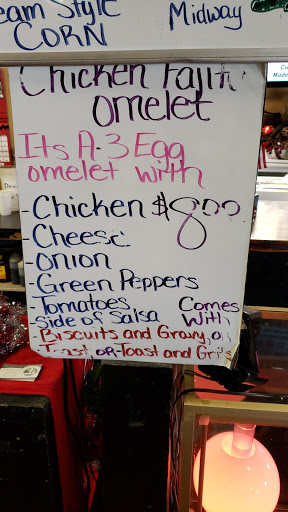 eam Style
CORN
Midway
Chicken Fajita
omelet
Its A 3 Egg
omelet with
-Chicken $8.00
-Cheese
-onion
-Green Peppers
-Tomatoes
Side of Salsa
Comes
With
-Biscuits and Gravy, or
Toast or Toast and Grits